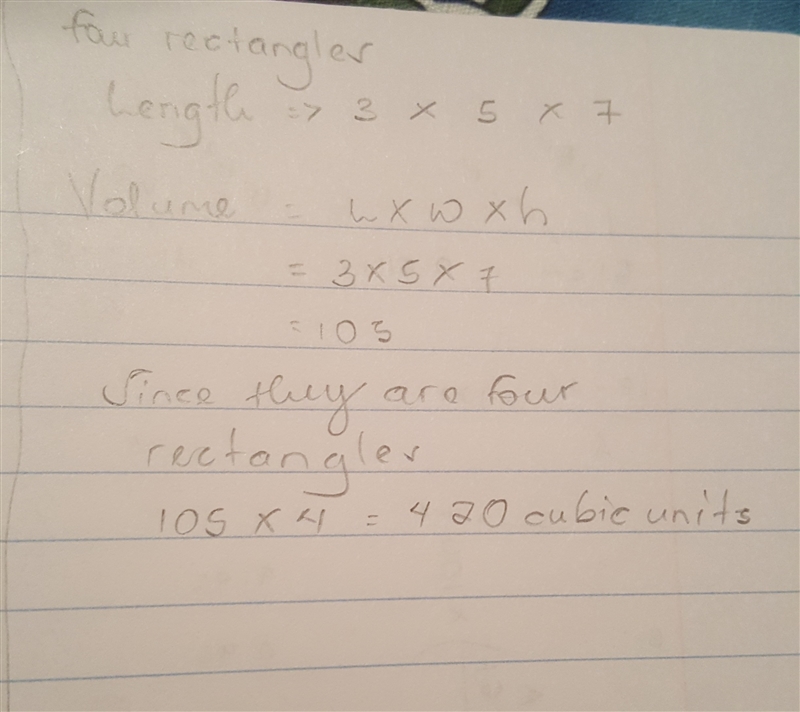 four rectangles
Length => 3 × 5 × 7
Volume = L × W × h
= 3 × 5 × 7
= 105
Since they are four
rectangles
105 × 4 = 420 cubic units